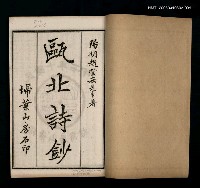 陽湖趙雲崧先生著
甌北詩鈔
掃葉山房石印